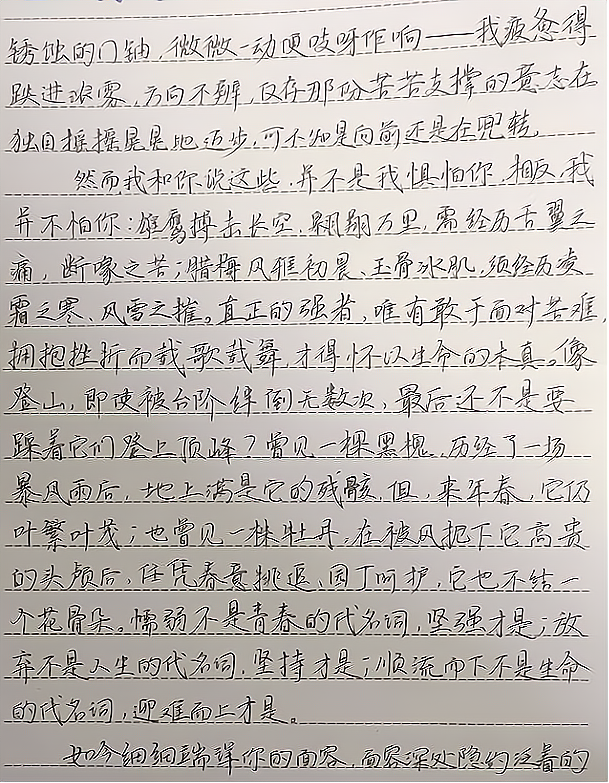 锈蚀的门轴，微微一动便吱呀作响——我疲惫得
跌进浓雾，方向不辨，仅存那份苦苦支撑的意志在
独自摇摇晃晃地迈步，可不知是向前还是在兜转。
然而我和你说这些，并不是我惧怕你，相反，我
并不怕你：雄鹰搏击长空，翱翔万里，需经历舌翼之
痛，断喙之苦；腊梅风雅初晨、玉骨冰肌，须经历凌
霜之寒、风雪之摧。真正的强者，唯有敢于面对苦难，
拥抱挫折而载歌载舞，才得怀以生命的本真。像
登山，即使被台阶绊倒无数次，最后还不是要
踩着它们登上顶峰？曾见一棵黑槐，历经了一场
暴风雨后，地上满是它的残骸，但，来年春，它仍
叶繁叶茂；也曾见一株牡丹，在被风扼下它高贵
的头颅后，任凭春意挑逗、园丁呵护，它也不结一
个花骨朵。懦弱不是青春的代名词，坚强才是；放
弃不是人生的代名词，坚持才是；顺流而下不是生命
的代名词，迎难而上才是。
如今细细端详你的面容，面容深处隐约泛着的